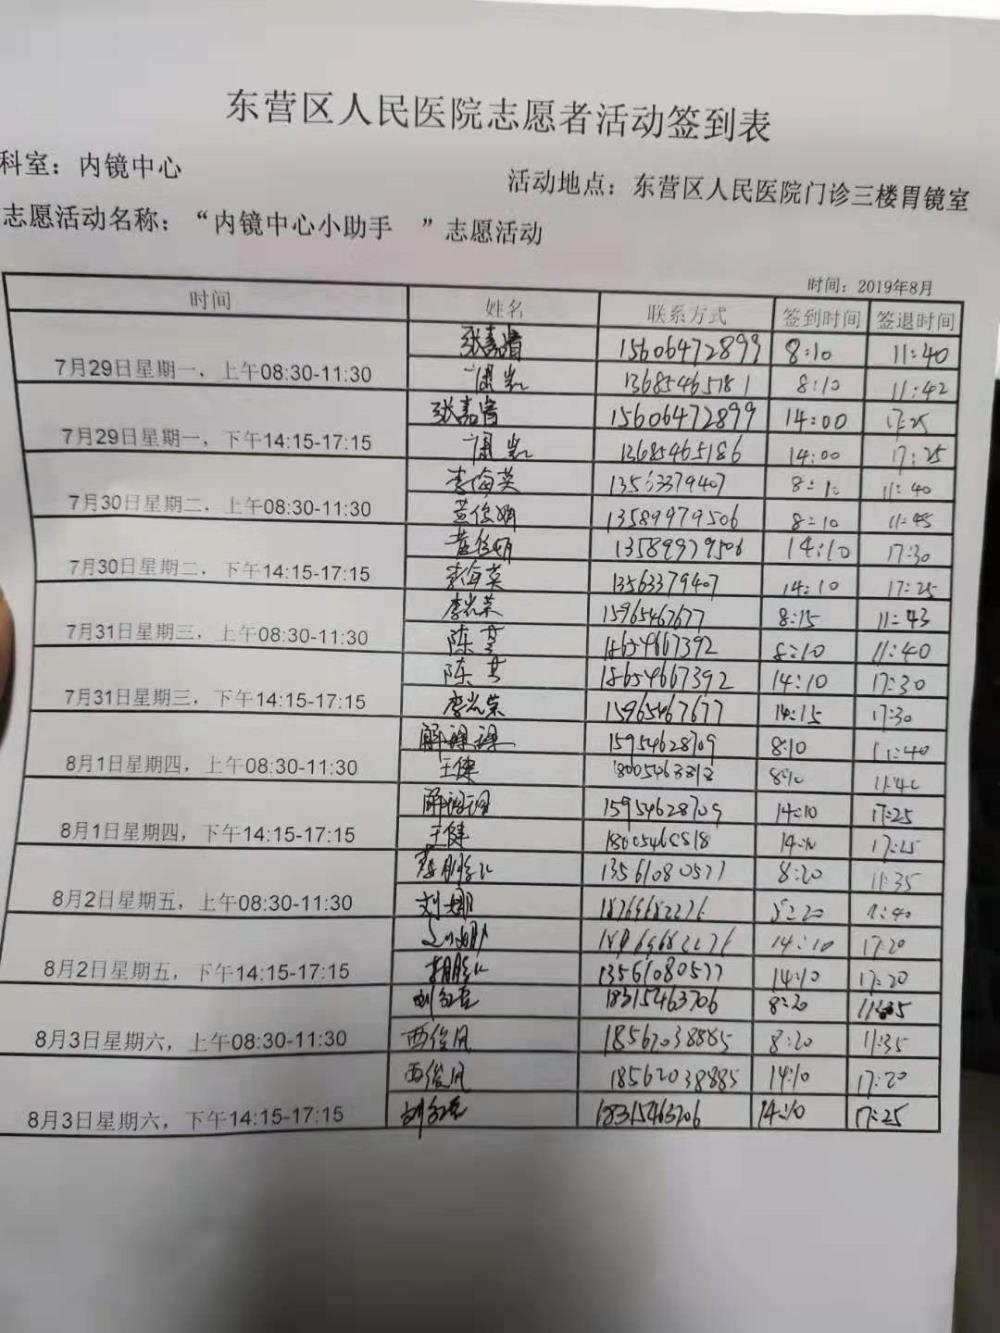 东营区人民医院志愿者活动签到表
科室：内镜中心
活动地点：东营区人民医院门诊三楼胃镜室
志愿活动名称：“内镜中心小助手 ”志愿活动
时间：2019年8月
时间 姓名 联系方式 签到时间 签退时间
7月29日星期一，上午08:30-11:30
15606472899 8:10 11:40
13685465181 8:10 11:42
7月29日星期一，下午14:15-17:15
15606472899 14:00 17:25
13685465186 14:00 17:25
7月30日星期二，上午08:30-11:30
李海英 13563379407 8:10 11:40
13589979506 8:10 11:45
7月30日星期二，下午14:15-17:15
13589979506 14:10 17:30
李海英 13563379407 14:10 17:25
7月31日星期三，上午08:30-11:30
李光荣 15965467677 8:15 11:43
陈 18654667392 8:10 11:40
7月31日星期三，下午14:15-17:15
陈 18654667392 14:10 17:30
李光荣 15965467677 14:15 17:30
8月1日星期四，上午08:30-11:30
解 15954628709 8:10 11:40
王健
8月1日星期四，下午14:15-17:15
解 15954628709 14:10 17:25
王健 17:25
8月2日星期五，上午08:30-11:30
13561080577 8:20 11:35
刘娜 18769682276 8:20
8月2日星期五，下午14:15-17:15
18769682276 14:10 17:20
13561080577 14:10 17:20
8月3日星期六，上午08:30-11:30
18315463706 8:20
西俊风 18562038885 8:20 11:35
8月3日星期六，下午14:15-17:15
西俊风 18562038885 14:10 17:20
18315463706 14:10 17:25